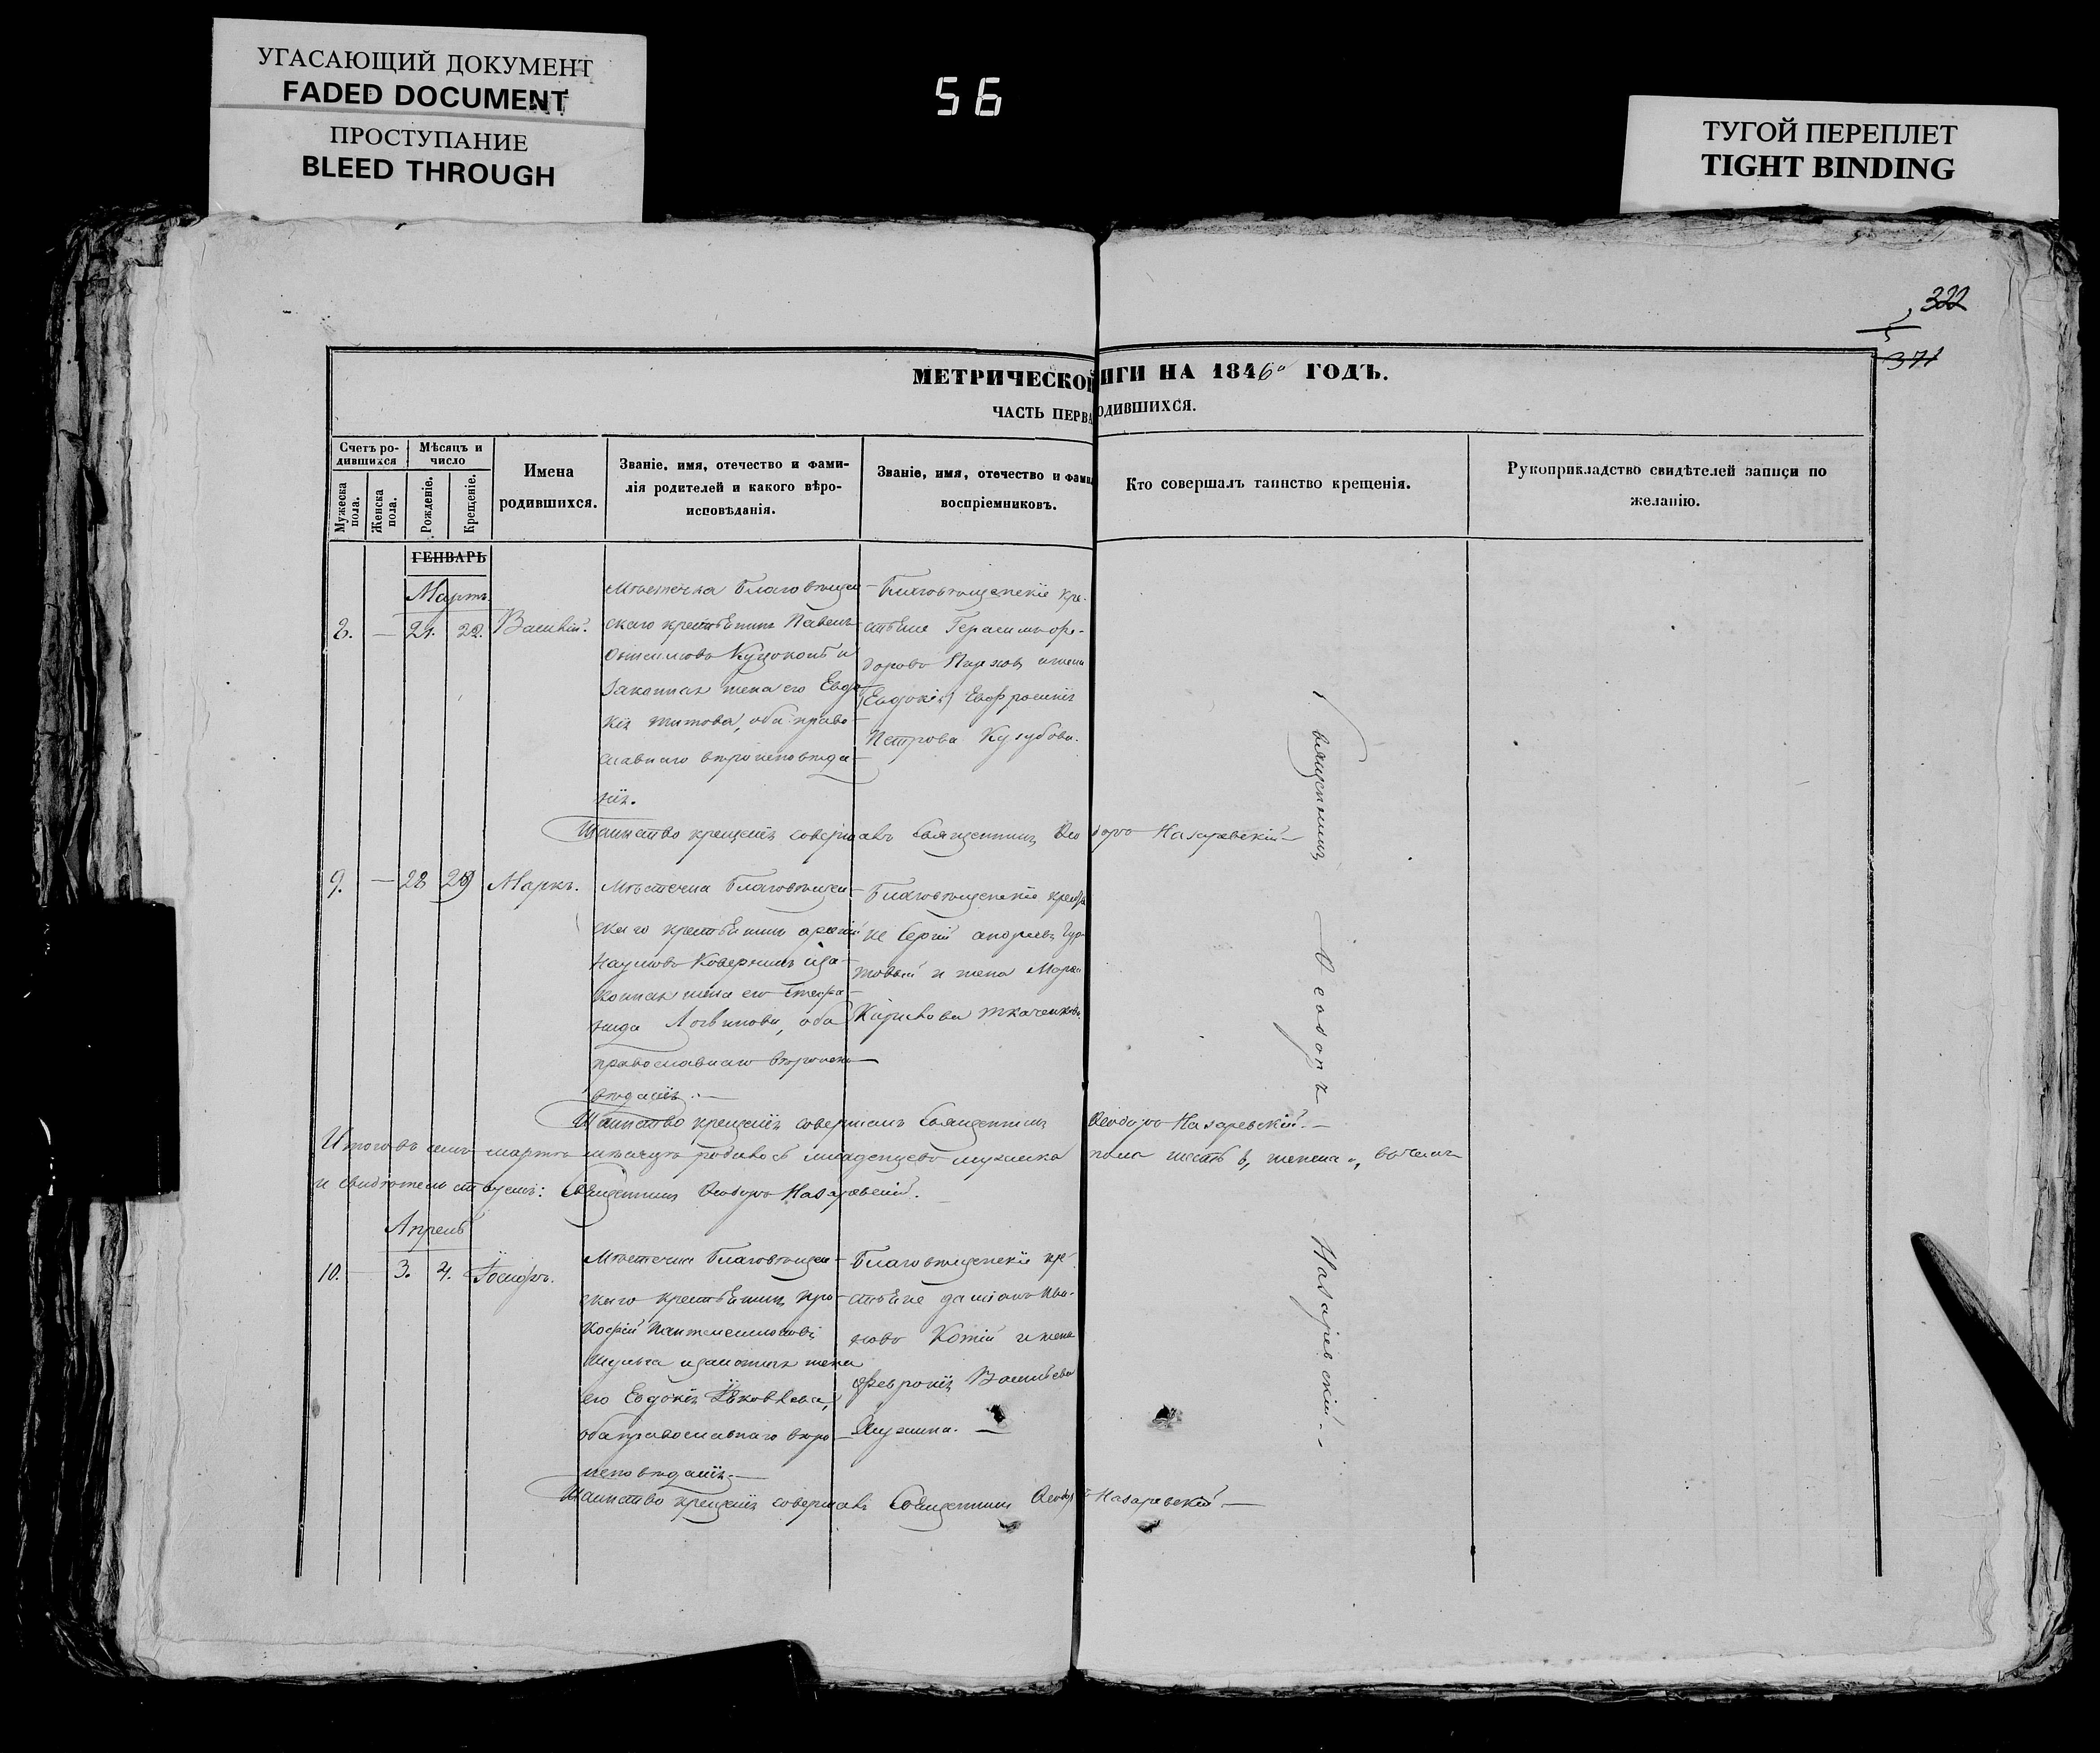 УГАСАЮЩИЙ ДОКУМЕНТ
FADED DOCUMENT
ПРОСТУПАНИЕ
BLEED THROUGH
56
ТУГОЙ ПЕРЕПЛЕТ
TIGHT BINDING
322
371
МЕТРИЧЕСКОЙ
ИГИ НА 1846 ГОДЪ.
ЧАСТЬ ПЕРВА
ОДИВШИХСЯ.
Счетъ ро-
дившихся
Мѣсяцъ и
число
Мужеска
пола.
Женска
пола.
Рожденіе.
Крещеніе.
Имена
родившихся.
Званіе, имя, отечество и фами-
лія родителей и какого вѣро-
исповѣданія.
Званіе, имя, отечество и фами
воспріемниковъ.
Кто совершалъ таинство крещенія.
Рукоприкладство свидѣтелей записи по
желанію.
ГЕНВАРЬ
Мартъ
8. — 21. 22. Василій.
Мѣстечка Благовѣщен
скаго крестьянинъ Павелъ
законная жена его Евдо
кія Титова, оба право
славнаго вѣроисповѣда
нія.
Благовѣщенскіе кре-
стьяне Герасимъ Фео-
доровъ и жена
(Евдокія) Евфросинія
Петрова
Таинство крещенія совершалъ Священникъ Ѳеодоръ Назаревскій —
9. — 28 29 Маркъ.
Мѣстечка Благовѣщен
скаго крестьянинъ
Наумовъ и за-
конная жена его Стефа-
нида Логвинова, оба
православнаго вѣроиспо
вѣданія. —
Благовѣщенскіе крестья
не Сергій Андреевъ
и жена Марѳа
Ткаченкова.
Таинство крещенія совершалъ Священникъ Ѳеодоръ Назаревскій. —
Итого въ семъ мартѣ мѣсяцѣ родилось младенцевъ мужеска пола шесть 6, женска
и свидѣтельствуемъ: Священникъ Ѳеодоръ Назаревскій.
Апрель
10. — 3. 4. Іосифъ.
Мѣстечка Благовѣщен
скаго крестьянинъ Про-
кофій Пантелеимоновъ
Шульга и законная жена
его Евдокія Яковлева,
оба православнаго вѣро
исповѣданія. —
Благовѣщенскіе кре-
стьяне Даміанъ Ива-
новъ и жена
Февронія Васильева
Таинство крещенія совершалъ Священникъ Ѳеодоръ Назаревскій —
Священникъ Ѳеодоръ Назаревскій